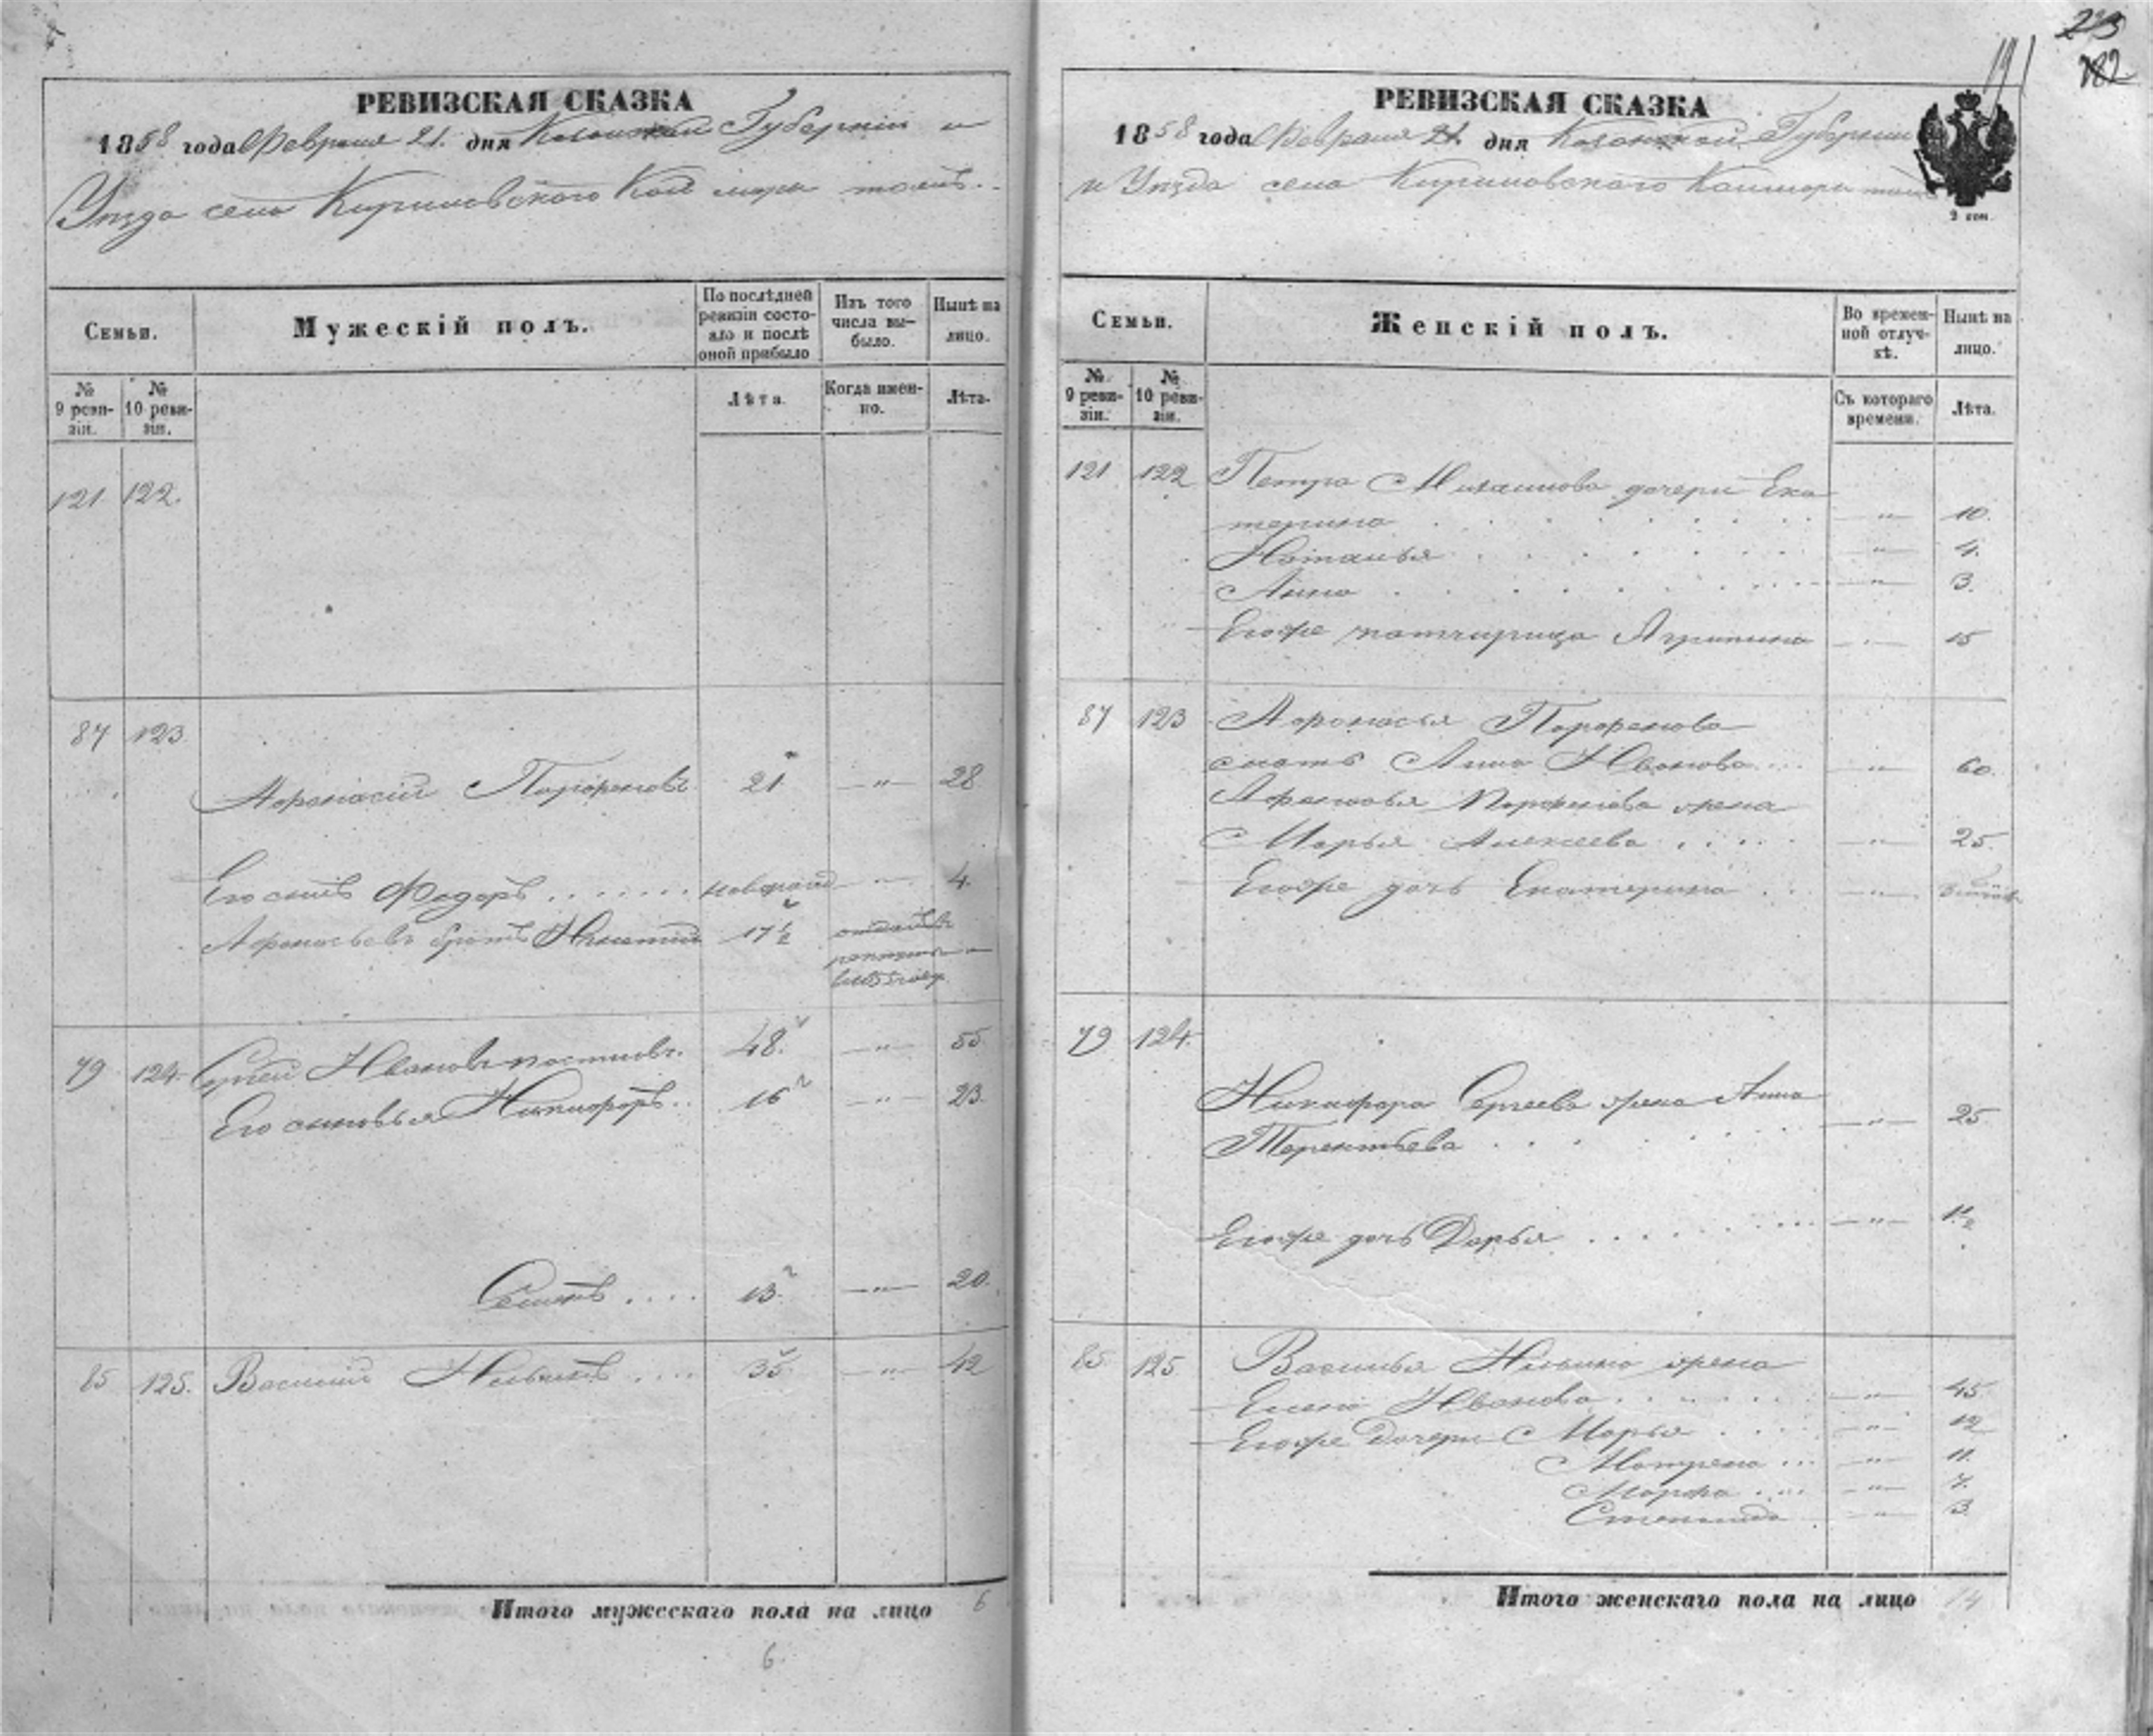 РЕВИЗСКАЯ СКАЗКА
1858 года Февраля 21. дня Казанской Губернiи и
Уѣзда села Кириловского Кай мары тожъ.
Семьи.
Мужескій полъ.
По послѣдней ревизіи состояло и послѣ оной прибыло
Изъ того числа выбыло.
Нынѣ на лицо.
№ 9 ревизіи.
№ 10 ревизіи.
Лѣта.
Когда именно.
Лѣта.
121 122.
87 123
Афонасiй Парфеновъ 21 — " — 28
Его сынъ Федоръ . . . . . . новорожд — " — 4.
Афонасьевъ братъ 17 1/2 отданъ въ
рекруты
79 124. Сергей Ивановъ 48. — " — 55
Его сыновья Никифоръ . . 16 — " — 23.
Семенъ . . . . 13. — " — 20.
85 125. Василiй Ильинъ . . . . 35. — " — 42
Итого мужескаго пола на лицо 6
6.
23
182
191
РЕВИЗСКАЯ СКАЗКА
1858 года Февраля 21. дня Казанской Губернiи
и Уѣзда села Кириловского Каймары тожъ
2 коп.
Семьи.
Женскій полъ.
Во временной отлучкѣ.
Нынѣ на лицо.
№ 9 ревизіи.
№ 10 ревизіи.
Съ котораго времени.
Лѣта.
121. 122 Петра Михаилова дочери Ека
терина . . . . . . — " — 10.
Наталья . . . . . . — " — 4.
Анна . . . . . . — " — 3.
Егоже Агрипина — " — 15
87 123 Афонасья Парфенова
мать Анна Иванова . . . — " — 60.
Афонасья Парфенова жена
Марья Алексеева . . . . — " — 25.
Егоже дочь Екатерина . . . — " —
79 124.
Никифора Сергеева жена Анна
Терентьева . . . . . — " — 25.
Егоже дочь Дарья . . . . . . — " — 1 1/2
85 125 Василья Ильина жена
Елена Иванова . . . . . . — " — 45.
Егоже Дочери Марья . . . . — " — 12
Матрена . . . — " — 11.
Марфа . . . . — " — 7.
Степанида — " — 3
Итого женскаго пола на лицо 14